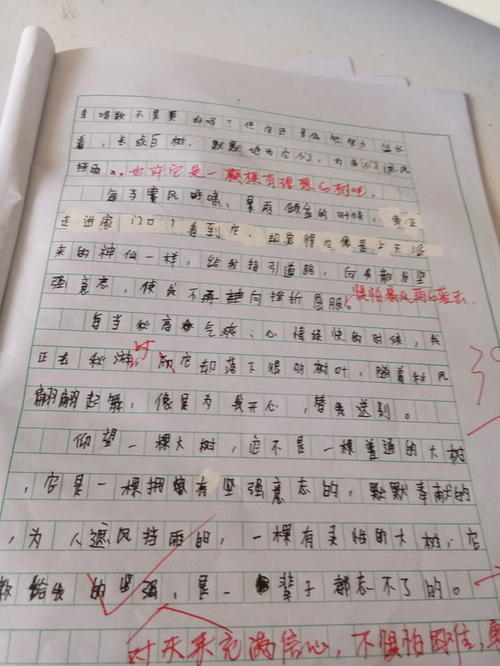 着,长成巨树,默默地为它们,为我们遮风
挡雨。也许它是一颗棵有理想的树吧。
每当寒风呼啸,暴雨倾盆的时候,我正
走进家门口,看到它,却觉得它像是上天派
来的神仙一样,给我指引道路,向我散与坚
强意志,使我不再向挫折屈服,惧怕暴风雨的袭击。
每当秋高气爽,心情愉快的时候,我
正去秋游时,而它却落下眼的树叶,随着秋风
翩翩起舞,像是为我开心,替我送别。
仰望一棵大树,它不是一棵普通的大树
,它是一棵拥有坚强意志的,默默奉献的
,为人遮风挡雨的,一棵有灵性的大树,它
教给我的坚强,是一辈子都忘不了的。
对未来充满信心,不惧怕